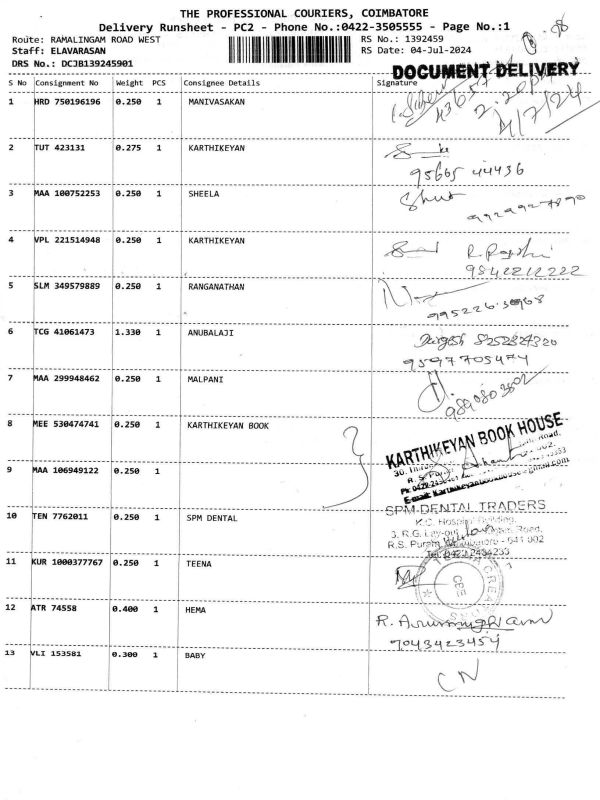 THE PROFESSIONAL COURIERS, COIMBATORE
Delivery Runsheet - PC2 - Phone No.:0422-3505555 - Page No.:1
Route: RAMALINGAM ROAD WEST
RS No.: 1392459
Staff: ELAVARASAN
RS Date: 04-Jul-2024
DRS No.: DCJB139245901
DOCUMENT DELIVERY
S No Consignment No Weight PCS Consignee Details Signature
2.20pm
4/7/24
1 HRD 750196196 0.250 1 MANIVASAKAN
2 TUT 423131 0.275 1 KARTHIKEYAN
95665 44436
3 MAA 100752253 0.250 1 SHEELA
9929927890
4 VPL 221514948 0.250 1 KARTHIKEYAN
9842212222
5 SLM 349579889 0.250 1 RANGANATHAN
6 TCG 41061473 1.330 1 ANUBALAJI
9597705474
7 MAA 299948462 0.250 1 MALPANI
9890803802
8 MEE 530474741 0.250 1 KARTHIKEYAN BOOK
KARTHIKEYAN BOOK HOUSE
9 MAA 106949122 0.250 1
SPM DENTAL TRADERS
10 TEN 7762011 0.250 1 SPM DENTAL
K.C. Hospital Building,
3, R.G. Lay-out, Road,
R.S. Puram, - 641 002
Tel: 0422 2434233
11 KUR 1000377767 0.250 1 TEENA
12 ATR 74558 0.400 1 HEMA
R. Arumugham
7043423454
13 VLI 153581 0.300 1 BABY
CN